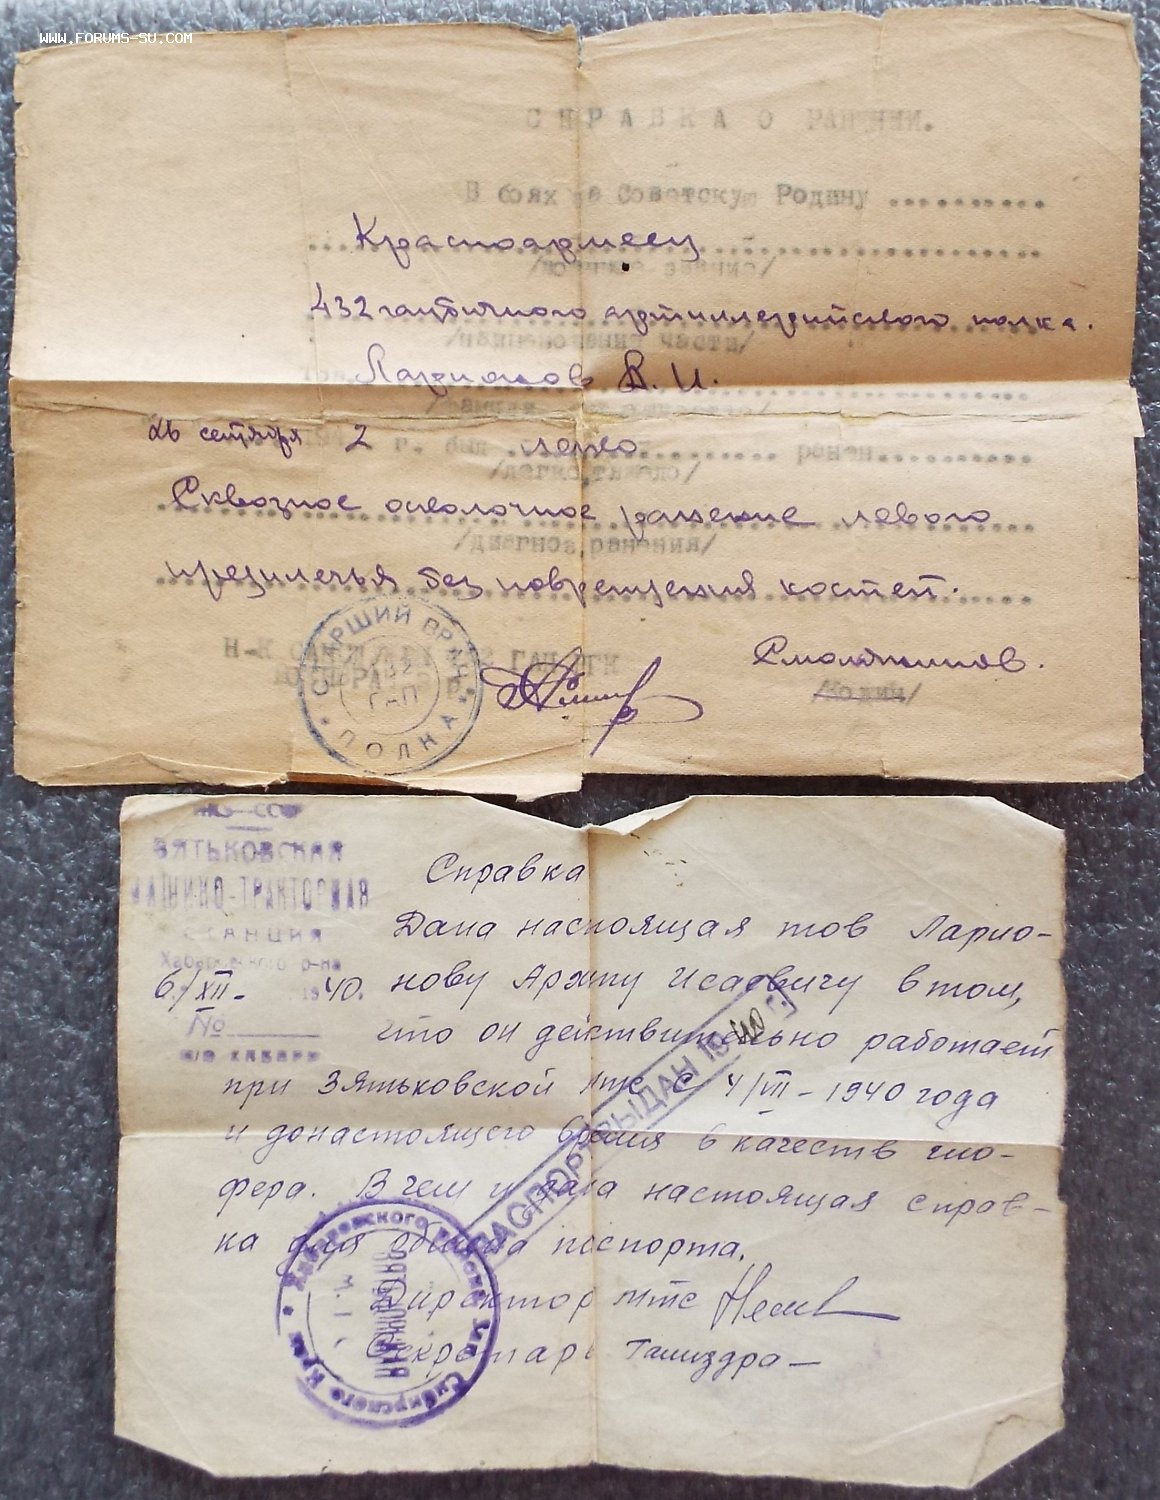 WWW.FORUMS-SU.COM
СПРАВКА О РАНЕНИИ.
В боях за Советскую Родину ..........
Красноармеец
/воинское звание/
432 гаубичного артиллерийского полка.
/наименования части/
Ларионов В. И.
26 сентября 2 г. был легко ранен
/легко, тяжело/
Сквозное осколочное ранение левого
/диагноз ранения/
предплечья без повреждения костей.
Н-К
Смолянинов.
СТАРШИЙ ВРАЧ
ГАП
ПОЛКА
НКЗ-СССР
ЗЯТЬКОВСКАЯ
МАШИНО-ТРАКТОРНАЯ
СТАНЦИЯ
Хабаровского р-на
6/XII - 1940.
№
п/о ХАБАРЫ
Справка
Дана настоящая тов Ларио-
нову Исаевичу в том,
что он действительно работает
при Зятьковской мтс с 4/III - 1940 года
и донастоящего время в качеств шо-
фера. В чем и дана настоящая справ-
ка для обмена паспорта.
Директор мтс
Секретарь
ПАСПОРТ ВЫДАН 1940 г.
Хабаровского района Зап. Сибирского Края
ЗЯТЬКОВСКАЯ